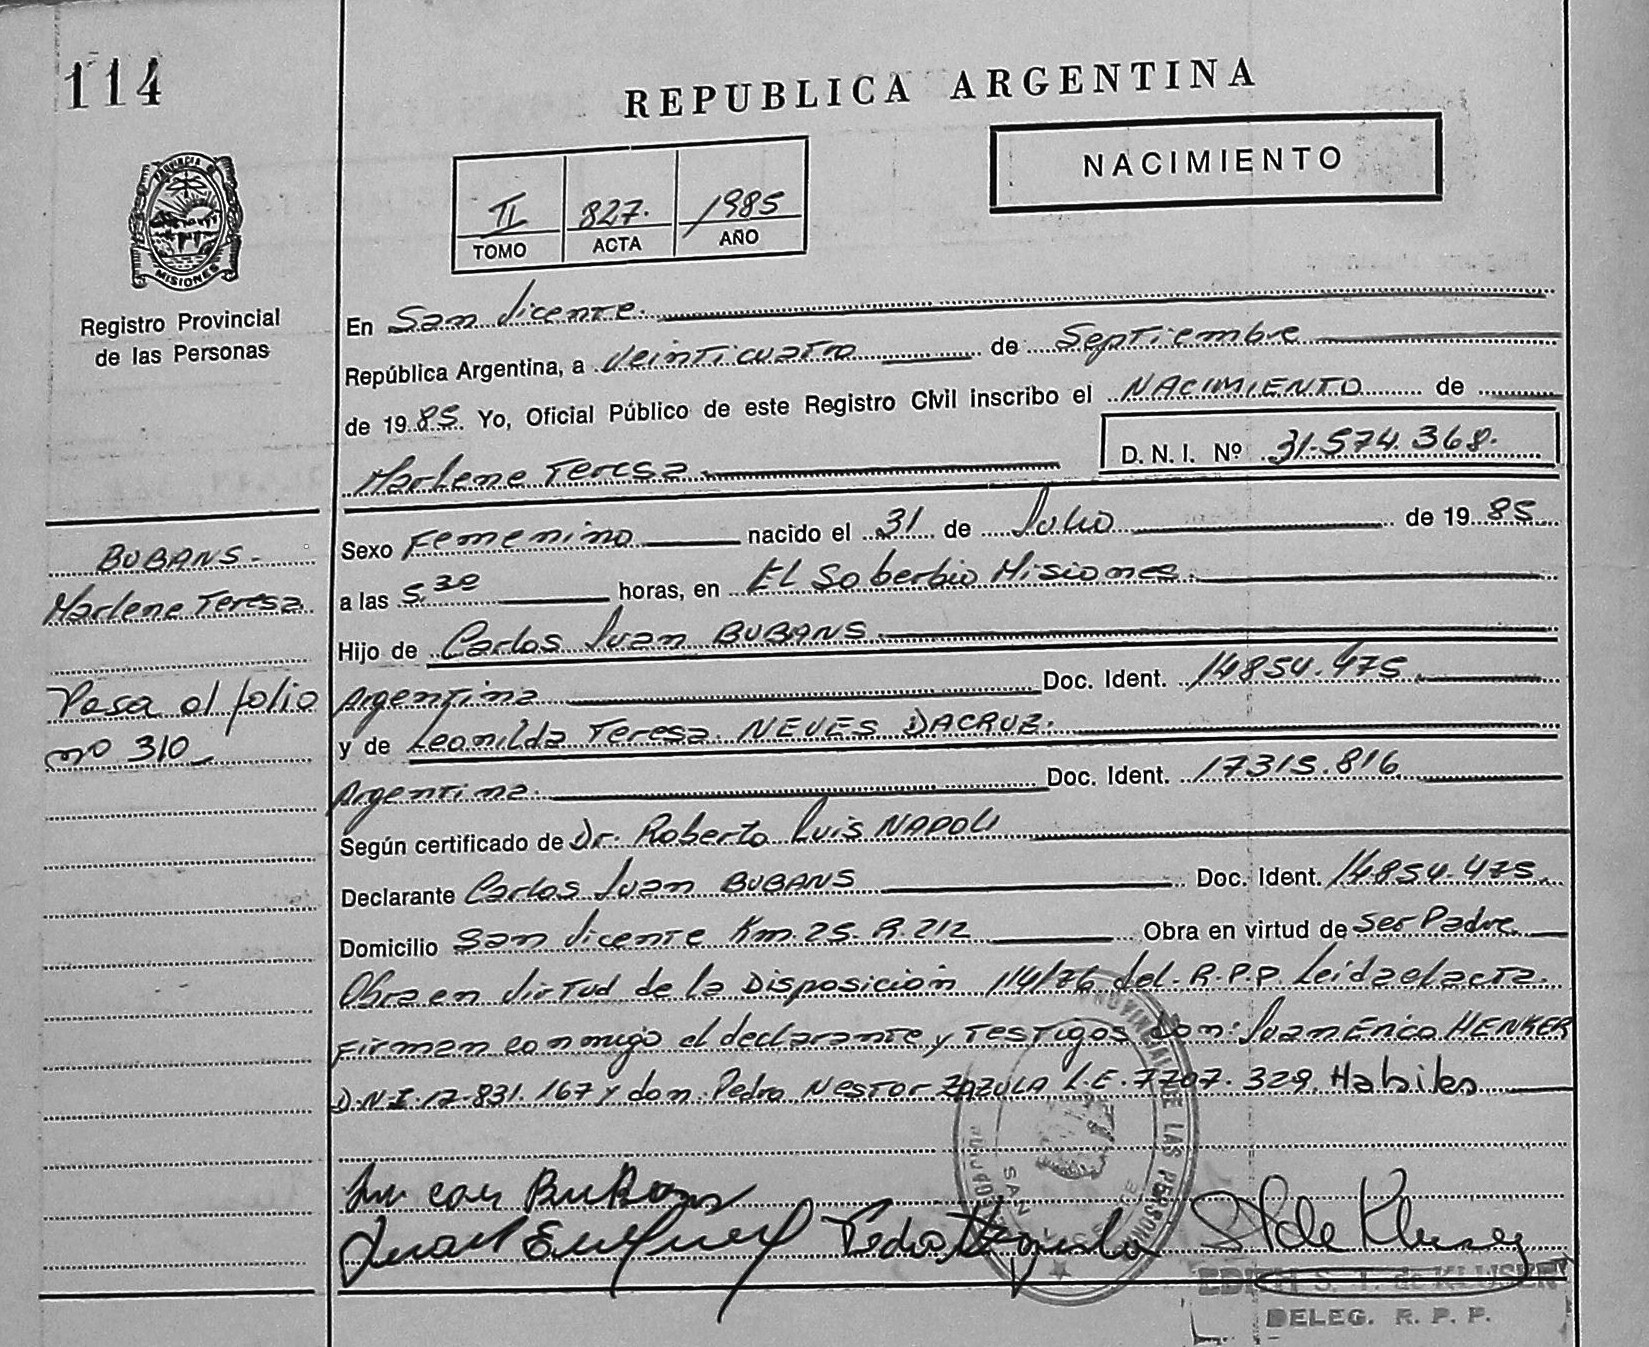 114
REPUBLICA ARGENTINA
NACIMIENTO
II 827. 1985
TOMO ACTA AÑO
PROVINCIA DE MISIONES
Registro Provincial
de las Personas
En San Vicente.
República Argentina, a Veinticuatro de Septiembre
de 1985 Yo, Oficial Público de este Registro Civil inscribo el NACIMIENTO de
D. N. I. Nº 31.574.368.
Marlene Teresa
BUBANS-
Marlene Teresa
Pasa al folio
nº 310
Sexo Femenino nacido el 31 de Julio de 1985
a las 5.30 horas, en El Soberbio Misiones.
Hijo de Carlos Juan BUBANS
Argentina Doc. Ident. 14854.475
y de Leonilda Teresa NEVES DACRUZ.
Argentina. Doc. Ident. 17315.816
Según certificado de Dr. Roberto Luis NAPOLI
Declarante Carlos Juan BUBANS Doc. Ident. 14854.475
Domicilio San Vicente Km. 25. R. 212 Obra en virtud de Ser Padre
Obra en virtud de la Disposición 114/76 del. R.P.P. Leida el acta.
Firman conmigo el declarante y Testigos Don: Juan Erico HENKER
D.N.I. 12.831.167 y don. Pedro Nestor ZAZULA L.E. 7707.329. Habiles
PROVINCIAL DE LAS PERSONAS
SAN VICENTE
EDITH S. T. de KLUSENER
DELEG. R. P. P.